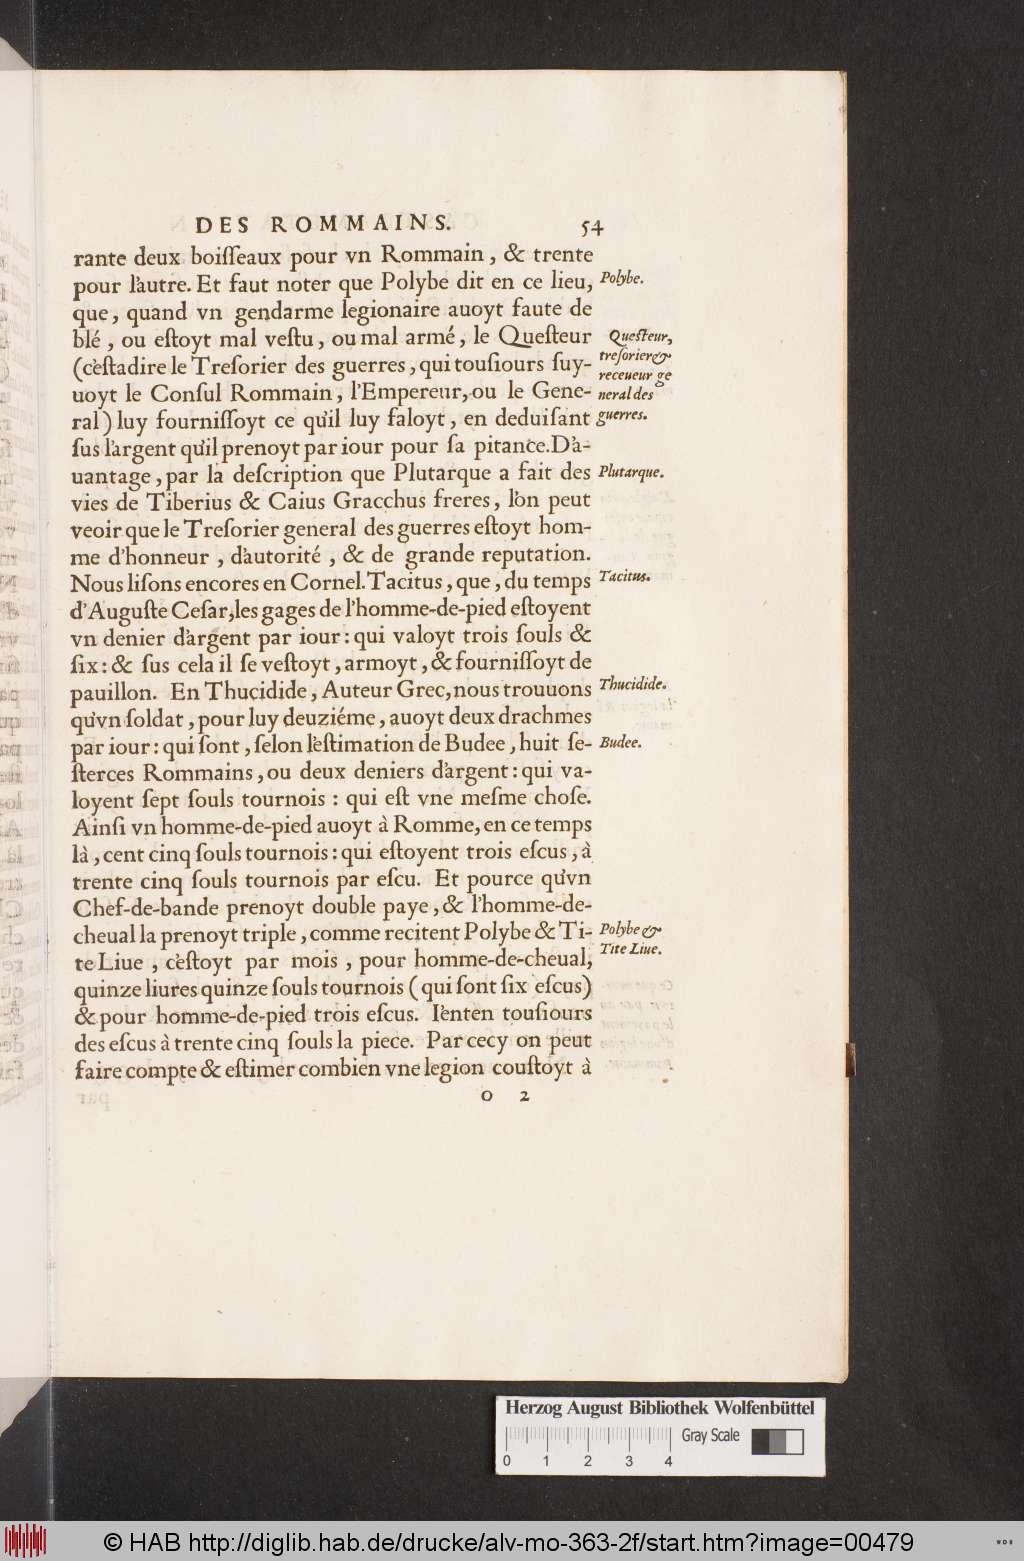 DES ROMMAINS. 54
rante deux boiſſeaux pour vn Rommain, & trente
pour l'autre. Et faut noter que Polybe dit en ce lieu,
Polybe.
que, quand vn gendarme legionaire auoyt faute de
blé, ou eſtoyt mal veſtu, ou mal armé, le Queſteur
Queſteur,
(c'eſtadire le Treſorier des guerres, qui touſiours ſuy-
treſorier &
uoyt le Conſul Rommain, l'Empereur, ou le Gene-
receueur ge
neral des
ral) luy fourniſſoyt ce qu'il luy faloyt, en deduiſant
guerres.
ſus l'argent qu'il prenoyt par iour pour ſa pitance. D'a-
uantage, par la deſcription que Plutarque a fait des
Plutarque.
vies de Tiberius & Caius Gracchus freres, l'on peut
veoir que le Treſorier general des guerres eſtoyt hom-
me d'honneur, d'autorité, & de grande reputation.
Nous liſons encores en Cornel. Tacitus, que, du temps
Tacitus.
d'Auguſte Ceſar, les gages de l'homme-de-pied eſtoyent
vn denier d'argent par iour: qui valoyt trois ſouls &
ſix: & ſus cela il ſe veſtoyt, armoyt, & fourniſſoyt de
pauillon. En Thucidide, Auteur Grec, nous trouuons
Thucidide.
qu'vn ſoldat, pour luy deuziéme, auoyt deux drachmes
par iour: qui ſont, ſelon l'eſtimation de Budee, huit ſe-
Budee.
ſterces Rommains, ou deux deniers d'argent: qui va-
loyent ſept ſouls tournois: qui eſt vne meſme choſe.
Ainſi vn homme-de-pied auoyt à Romme, en ce temps
là, cent cinq ſouls tournois: qui eſtoyent trois eſcus, à
trente cinq ſouls tournois par eſcu. Et pource qu'vn
Chef-de-bande prenoyt double paye, & l'homme-de-
cheual la prenoyt triple, comme recitent Polybe & Ti-
Polybe &
te Liue, c'eſtoyt par mois, pour homme-de-cheual,
Tite Liue.
quinze liures quinze ſouls tournois (qui ſont ſix eſcus)
& pour homme-de-pied trois eſcus. I'enten touſiours
des eſcus à trente cinq ſouls la piece. Par cecy on peut
faire compte & eſtimer combien vne legion couſtoyt à
o 2
Herzog August Bibliothek Wolfenbüttel
Gray Scale
0 1 2 3 4
© HAB http://diglib.hab.de/drucke/alv-mo-363-2f/start.htm?image=00479